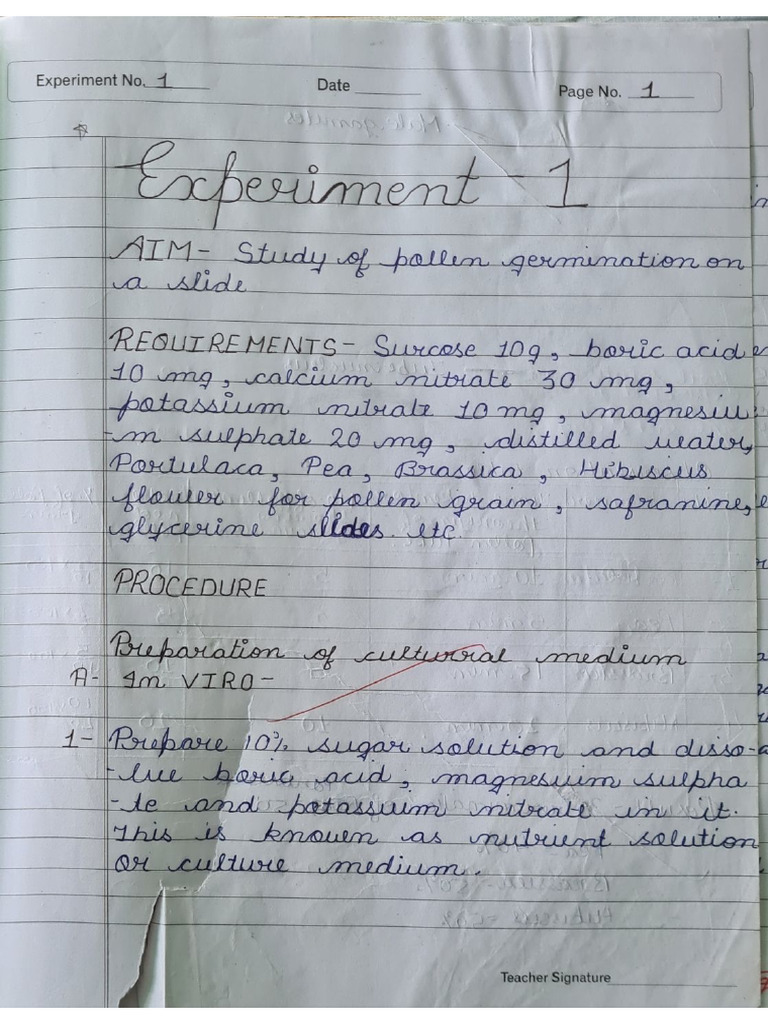 Experiment No. 1 Date Page No. 1
Experiment - 1
AIM- Study of pollen germination on
a slide
REQUIREMENTS- Surcose 10g, boric acid
10 mg, calcium nitrate 30 mg,
potassium nitrate 10 mg, magnesiu
-m sulphate 20 mg, distilled water,
Portulaca, Pea, Brassica, Hibiscus
flower for pollen grain, safranine,
glycerine slides etc.
PROCEDURE
Preparation of culturral medium
A- In VIRO-
1- Prepare 10% sugar solution and disso-
-lve boric acid, magnesium sulpha
-te and potassium nitrate in it.
This is known as nutrient solution
or culture medium.
Teacher Signature